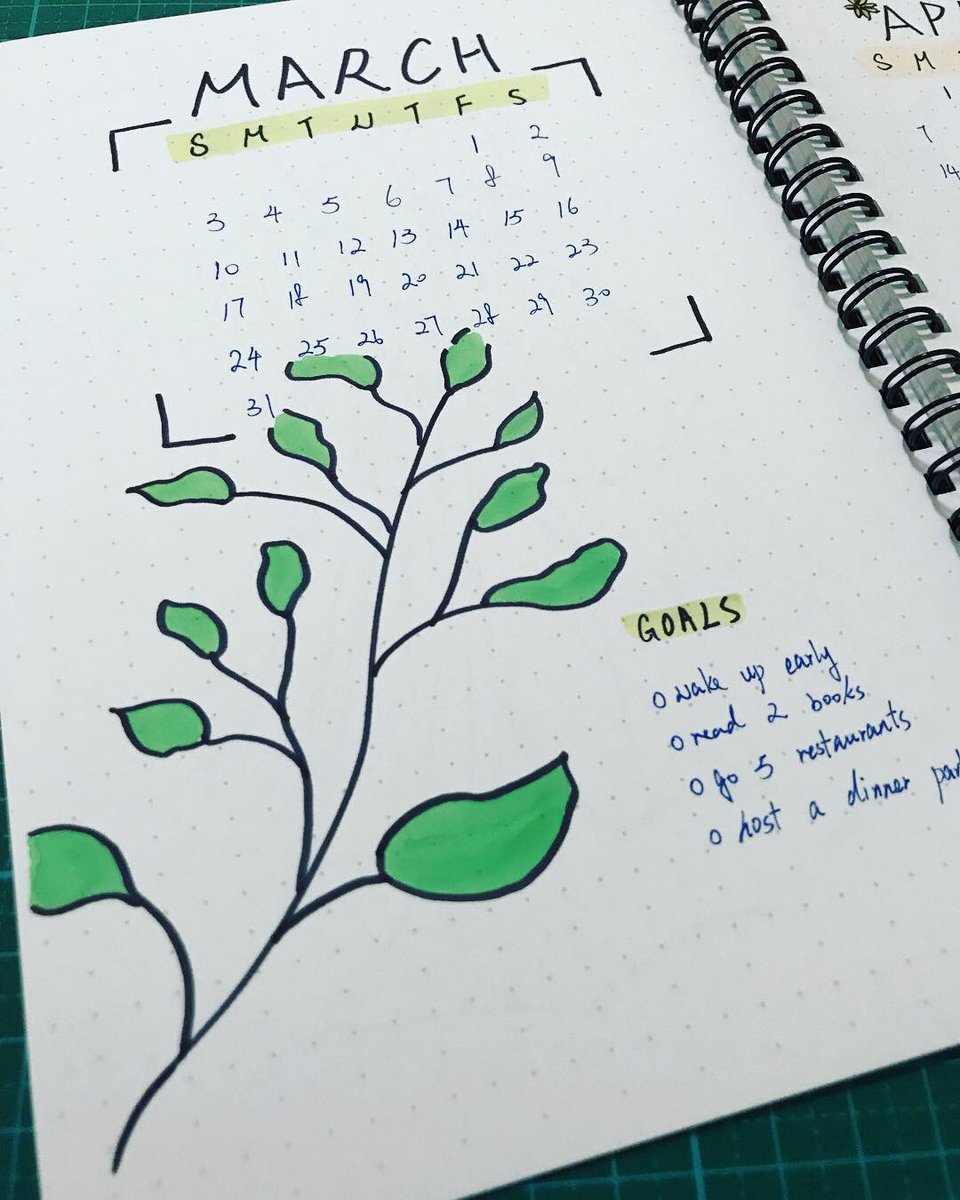 MARCH
S M T W T F S
1 2
3 4 5 6 7 8 9
10 11 12 13 14 15 16
17 18 19 20 21 22 23
24 25 26 27 28 29 30
31
GOALS
o wake up early
o read 2 books
o go 5 restaurants
o host a dinner part
*AP
S M
1
7
14